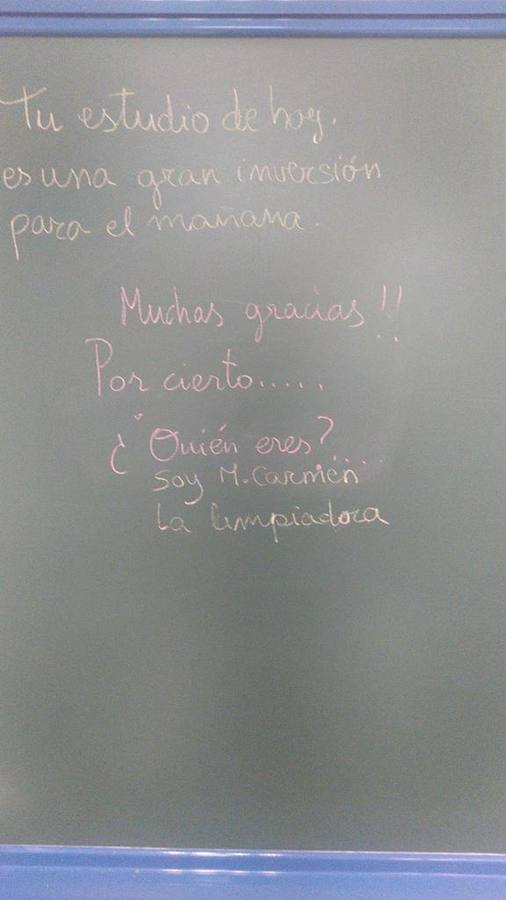 Tu estudio de hoy.
es una gran inversión
para el mañana.
Muchas gracias!!
Por cierto.....
¿Quién eres?...
Soy M. Carmen
La limpiadora